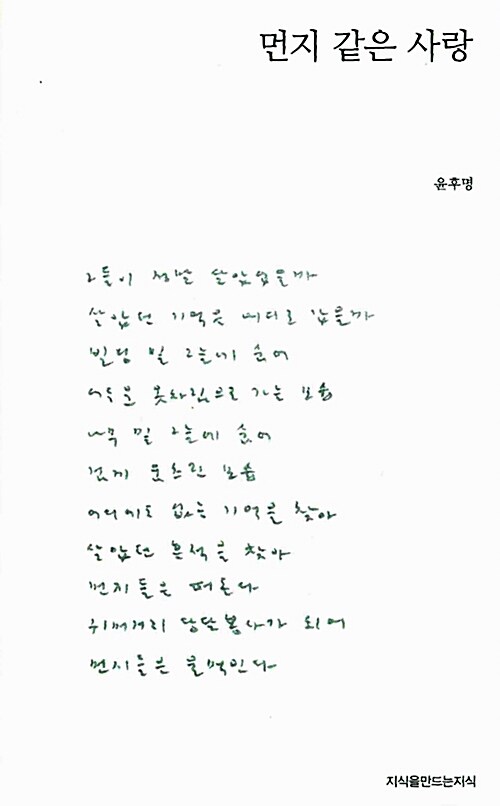 먼지 같은 사랑
윤후명
그들이 정말 살았었을까
살았던 기억은 어디로 갔을까
빌딩 밑 그늘에 숨어
어두운 옷차림으로 가는 모습
나무 밑 그늘에 숨어
검게 웅크린 모습
어디에도 없는 기억을 찾아
살았던 흔적을 찾아
먼지들은 떠돈다
귀머거리 당달봉사가 되어
먼지들은 울먹인다
지식을만드는지식